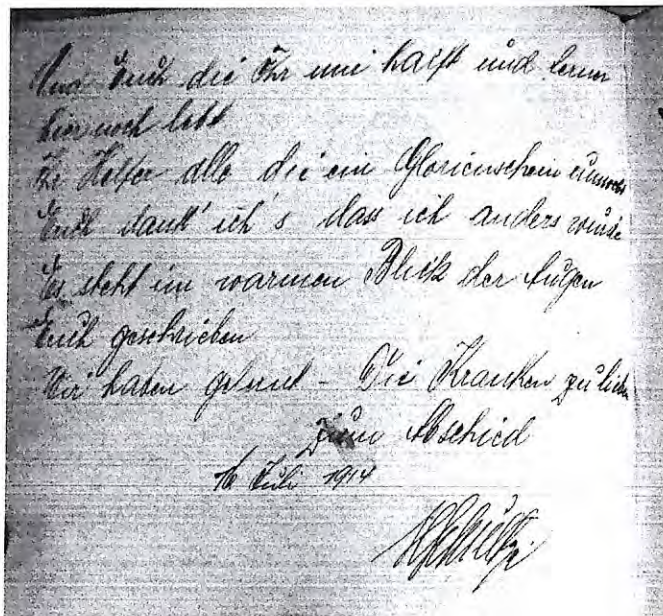 Und Euch die Ihr mir halft und ferner
hier noch lebt
Ihr Helfer alle die ein Glorienschein
Euch dank' ich's dass ich anders
Es steht im warmen Blick der Augen
Euch geschrieben
Wir haben gelernt - Die Kranken zu lieben
Zum Abschied
16 Juli 1914